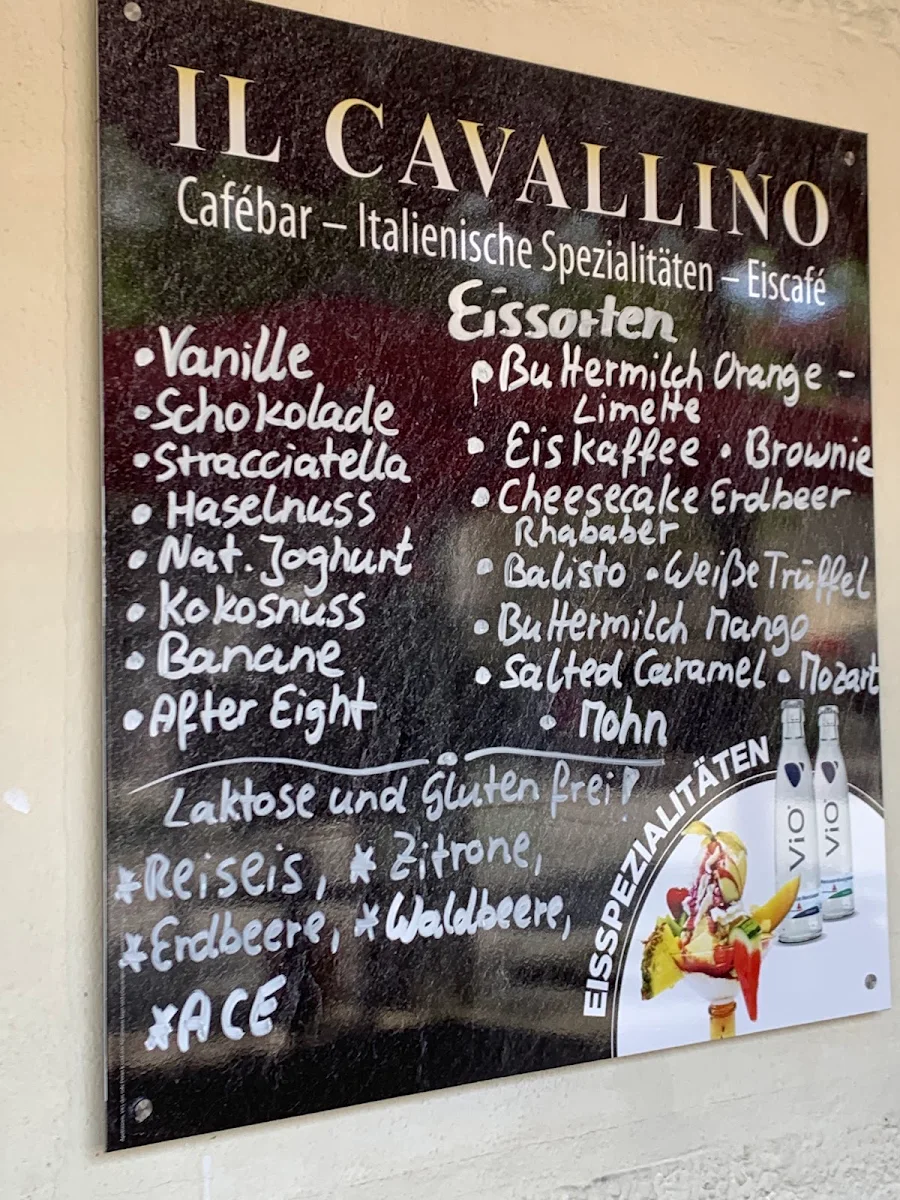 IL CAVALLINO
Cafébar – Italienische Spezialitäten – Eiscafé
Eissorten
• Vanille
• Schokolade
• Stracciatella
• Haselnuss
• Nat. Joghurt
• Kokosnuss
• Banane
• After Eight
• Buttermilch Orange -
Limette
• Eiskaffee • Brownie
• Cheesecake Erdbeer
Rhababer
• Balisto • Weiße Trüffel
• Buttermilch Mango
• Salted Caramel • Mozart
• Mohn
Laktose und Gluten frei!
*Reiseis, * Zitrone,
*Erdbeere, *Waldbeere,
*ACE
EISSPEZIALITÄTEN
ViO
ViO